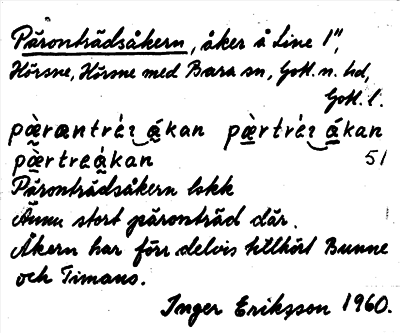 Päronträdsåkern, åker å Line 1",
Hörsne, Hörsne med Bara sn, Gotl. n. hd,
Gotl. l.
pæ̀rœntréz ákan pæ̀rtréz ákan
pæ̀rtreákan 51
Päronträdsåkern lskk
Ännu stort päronträd där.
Åkern har förr delvis tillhört Bunne
och Timans.
Inger Eriksson 1960.